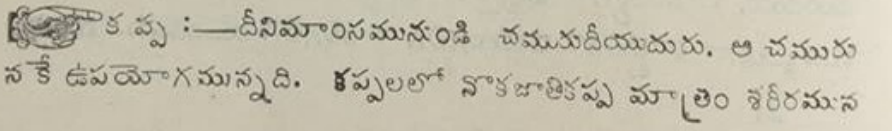 కప్ప :—దీనిమాంసమునుండి చమురుదీయుదురు. ఆ చమురు
నకే ఉపయోగమున్నది. కప్పలలో నొకజాతికప్ప మాత్రం శరీరమున